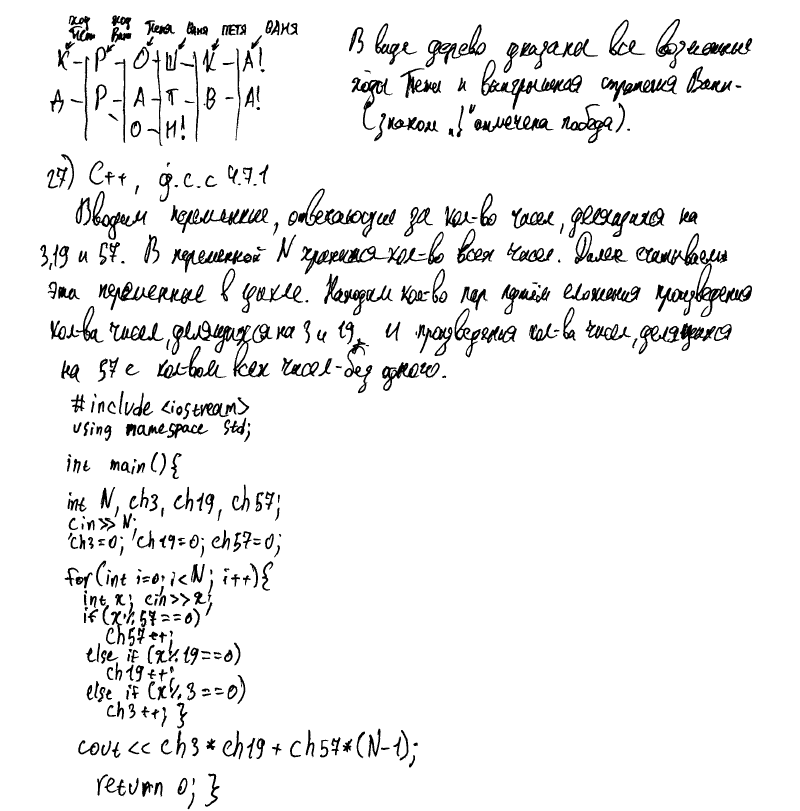 ход ход Петя Ваня ПЕТЯ ВАНЯ
Пети Вани
К - Р - О + Ш - К - А!
А - Р - А - Т - В - А!
О - Н!
В виде дерево указаны все возможные
ходы Пети и выигрышная стратегия Вани-
(знаком „!“ отмечена победа).
27) C++, d.c.c 4.7.1
Вводим переменные, отвечающие за кол-во чисел, делящихся на
3,19 и 57. В переменной N хранится кол-во всех чисел. Далее считываем
эта переменные в цикле. Находим кол-во пар путём сложения произведения
кол-ва чисел, делящихся на 3 и 19, и произведения кол-ва чисел, делящихся
на 57 с кол-вом всех чисел - без одного.
#include <iostream>
using namespace std;
int main(){
int N, ch3, ch19, ch57;
cin>>N;
ch3=0; ch19=0; ch57=0;
for(int i=0; i<N; i++){
int x; cin>>x;
if(x%57==0)
ch57++;
else if (x%19==0)
ch19++;
else if (x%3==0)
ch3++; }
cout << ch3*ch19+ch57*(N-1);
return 0; }